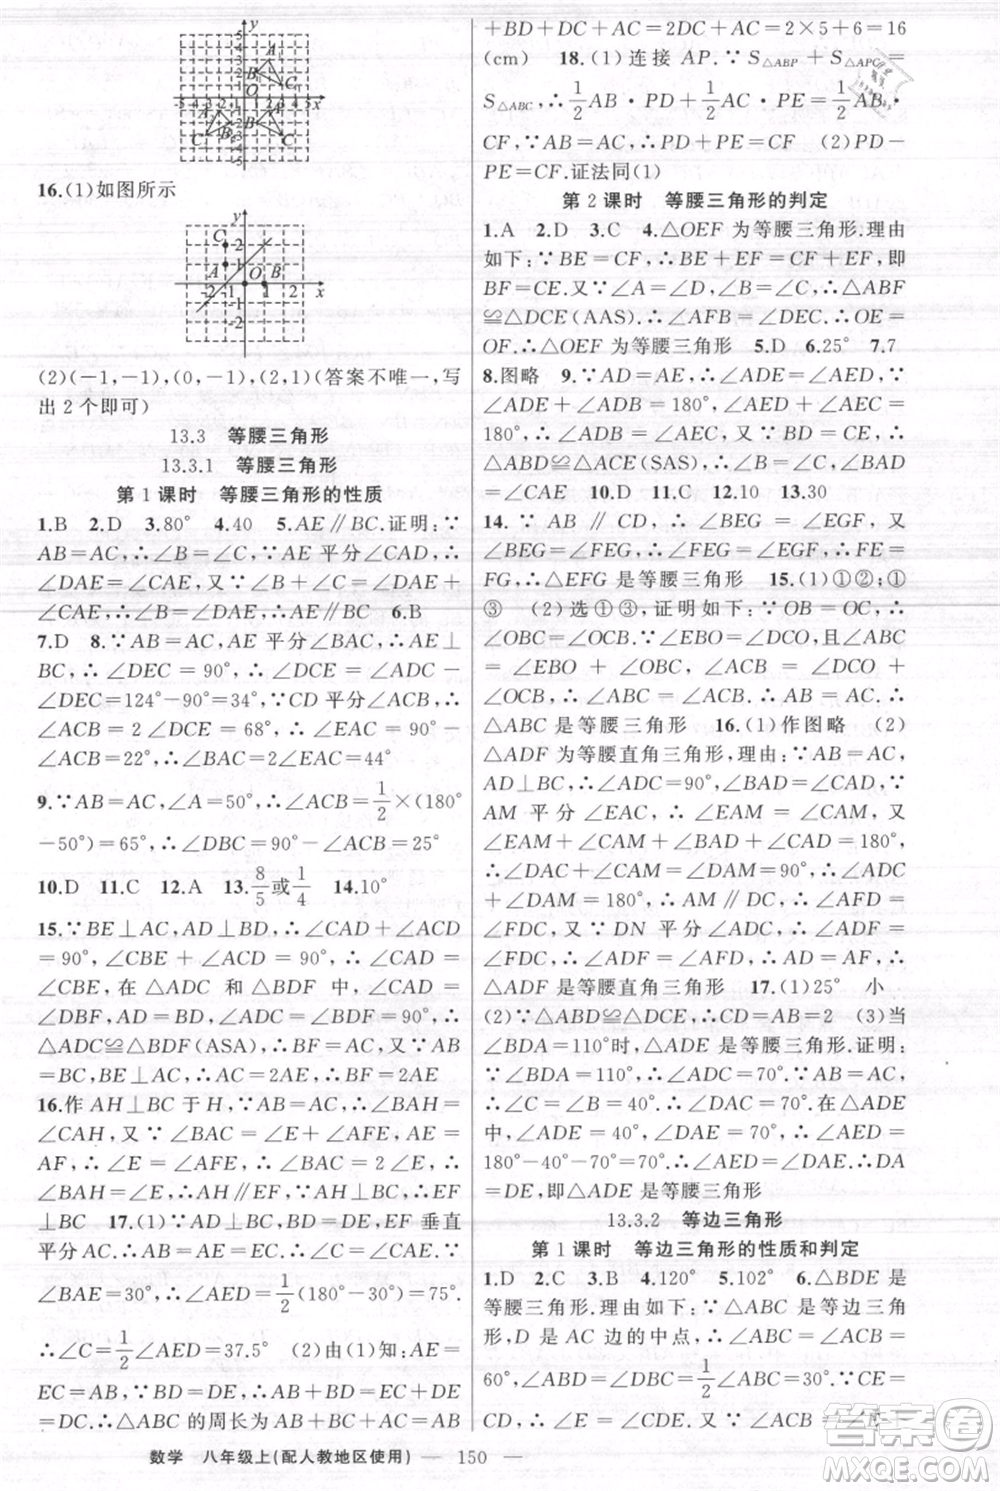 16.(1)如图所示
(2)(-1,-1),(0,-1),(2,1)(答案不唯一,写
出2个即可)
13.3 等腰三角形
13.3.1 等腰三角形
第1课时 等腰三角形的性质
1.B 2.D 3.80° 4.40 5.AE∥BC.证明:∵
AB=AC,∴∠B=∠C,∵AE平分∠CAD,∴
∠DAE=∠CAE,又∵∠CAD=∠B+∠C,∴
∠B=∠DAE,∴AE∥BC 6.B
7.D 8.∵AB=AC,AE平分∠BAC,∴AE⊥
BC,∴∠DEC=90°,∴∠DCE=∠ADC-
∠DEC=124°-90°=34°,∵CD平分∠ACB,∴
∠ACB=2∠DCE=68°,∴∠BAE=90°-
∠ACB=22°,∴∠CAE=∠BAE=22°
9.∵AB=AC,∠A=50°,∴∠ACB=1/2×(180°
-50°)=65°,∴∠DBC=90°-∠ACB=25°
10.D 11.C 12.A 13.8/5或1/4 14.10°
15.∵BE⊥AC,AD⊥BC,∴∠CAD+∠ACD
=90°,∠CBE+∠ACD=90°,∴∠CAD=
∠CBE,在△ADC和△BDF中,∠CAD=
∠DBF,AD=BD,∠ADC=∠BDF=90°,∴
△ADC≌△BDF(ASA),∴BF=AC,∵AB=
BC,BE⊥AC,∴AC=2AE,∴BF=2AE
16.作AH⊥BC于H,∵AB=AC,∴∠BAH=
∠CAH,又∵∠BAC=∠E+∠AFE,AE=
AF,∴∠E=∠AFE,∴∠BAC=2∠E,∴
∠BAH=∠E,∴AH∥EF,∵AH⊥BC,∴EF
⊥BC 17.(1)∵AD⊥BC,BD=DE,EF垂直
平分AC,∴AB=AE=EC,∴∠C=∠CAE,∵
∠BAE=30°,∴∠AED=1/2(180°-30°)=75°,
∴∠C=1/2∠AED=37.5° (2)由(1)知:AE=
EC=AB,∵BD=DE,∴AB+BD=EC+DE=
DC,∴△ABC的周长为AB+BC+AC=AB
+BD+DC+AC=2DC+AC=2×5+6=16
(cm) 18.(1)连接AP.∵S△ABP+S△APC=
S△ABC,∴1/2AB·PD+1/2AC·PE=1/2AB·
CF,∵AB=AC,∴PD+PE=CF (2)PD-
PE=CF.证法同(1)
第2课时 等腰三角形的判定
1.A 2.D 3.C 4.△OEF为等腰三角形.理由
如下:∵BE=CF,∴BE+EF=CF+EF,即
BF=CE.又∵∠A=∠D,∠B=∠C,∴△ABF
≌△DCE(AAS),∴∠AFB=∠DEC,∴OE=
OF.∴△OEF为等腰三角形 5.D 6.25° 7.7
8.图略 9.∵AD=AE,∴∠ADE=∠AED,∵
∠ADE+∠ADB=180°,∠AED+∠AEC=
180°,∴∠ADB=∠AEC,又∵BD=CE,∴
△ABD≌△ACE(SAS),∴∠BAD
=∠CAE 10.D 11.C 12.10 13.30
14.∵AB∥CD,∴∠BEG=∠EGF,又
∠BEG=∠FEG,∴∠FEG=∠EGF,∴FE=
FG,∴△EFG是等腰三角形 15.(1)①②;①
③ (2)选①③,证明如下:∵OB=OC,∴
∠OBC=∠OCB.∵∠EBO=∠DCO,∠ABC
=∠EBO+∠OBC,∠ACB=∠DCO+
∠OCB,∴∠ABC=∠ACB,∴AB=AC,∴
△ABC是等腰三角形 16.(1)作图略 (2)
△ADF为等腰直角三角形,理由:∵AB=AC,
AD⊥BC,∴∠BAD=∠CAD,∵
AM平分∠EAC,∴∠EAM=∠CAM,又
∠EAM+∠CAM+∠BAD+∠CAD=180°,
∴∠CAD+∠CAM=∠DAM=90°,∴∠ADC
+∠DAM=180°,∴AM∥BC,∴∠AFD=
∠FDC,又∵DN平分∠ADC,∴∠ADF=
∠FDC=∠AFD,∴AD=AF,∴△ADF是
等腰直角三角形 17.(1)25° 小
(2)∵△ABD≌△DCE,∴CD=2 (3)当
∠BDA=110°时,△ADE是等腰三角形.证明:
∵∠BDA=110°,∴∠ADC=70°,∵∠B=
∠C=40°,∴∠DAC=70°,∴△ADE中,
∠ADE=40°,∠DAE=70°,∴∠AED=
180°-40°-70°=70°,∴∠AED=∠DAE,∴DA
=DE,即△ADE是等腰三角形
13.3.2 等边三角形
第1课时 等边三角形的性质和判定
1.D 2.C 3.B 4.120° 5.102° 6.△BDE是
等腰三角形.理由如下:∵△ABC是等边三角
形,D是AC边的中点,∴∠ABC=∠ACB=
60°,∠DBC=1/2∠ABC=30°.∵CE=
CD,∴∠E=∠CDE,∵∠ACB=∠CDE+
数学 八年级上(配人教地区使用) — 150 —
答案圈
MXQE.COM